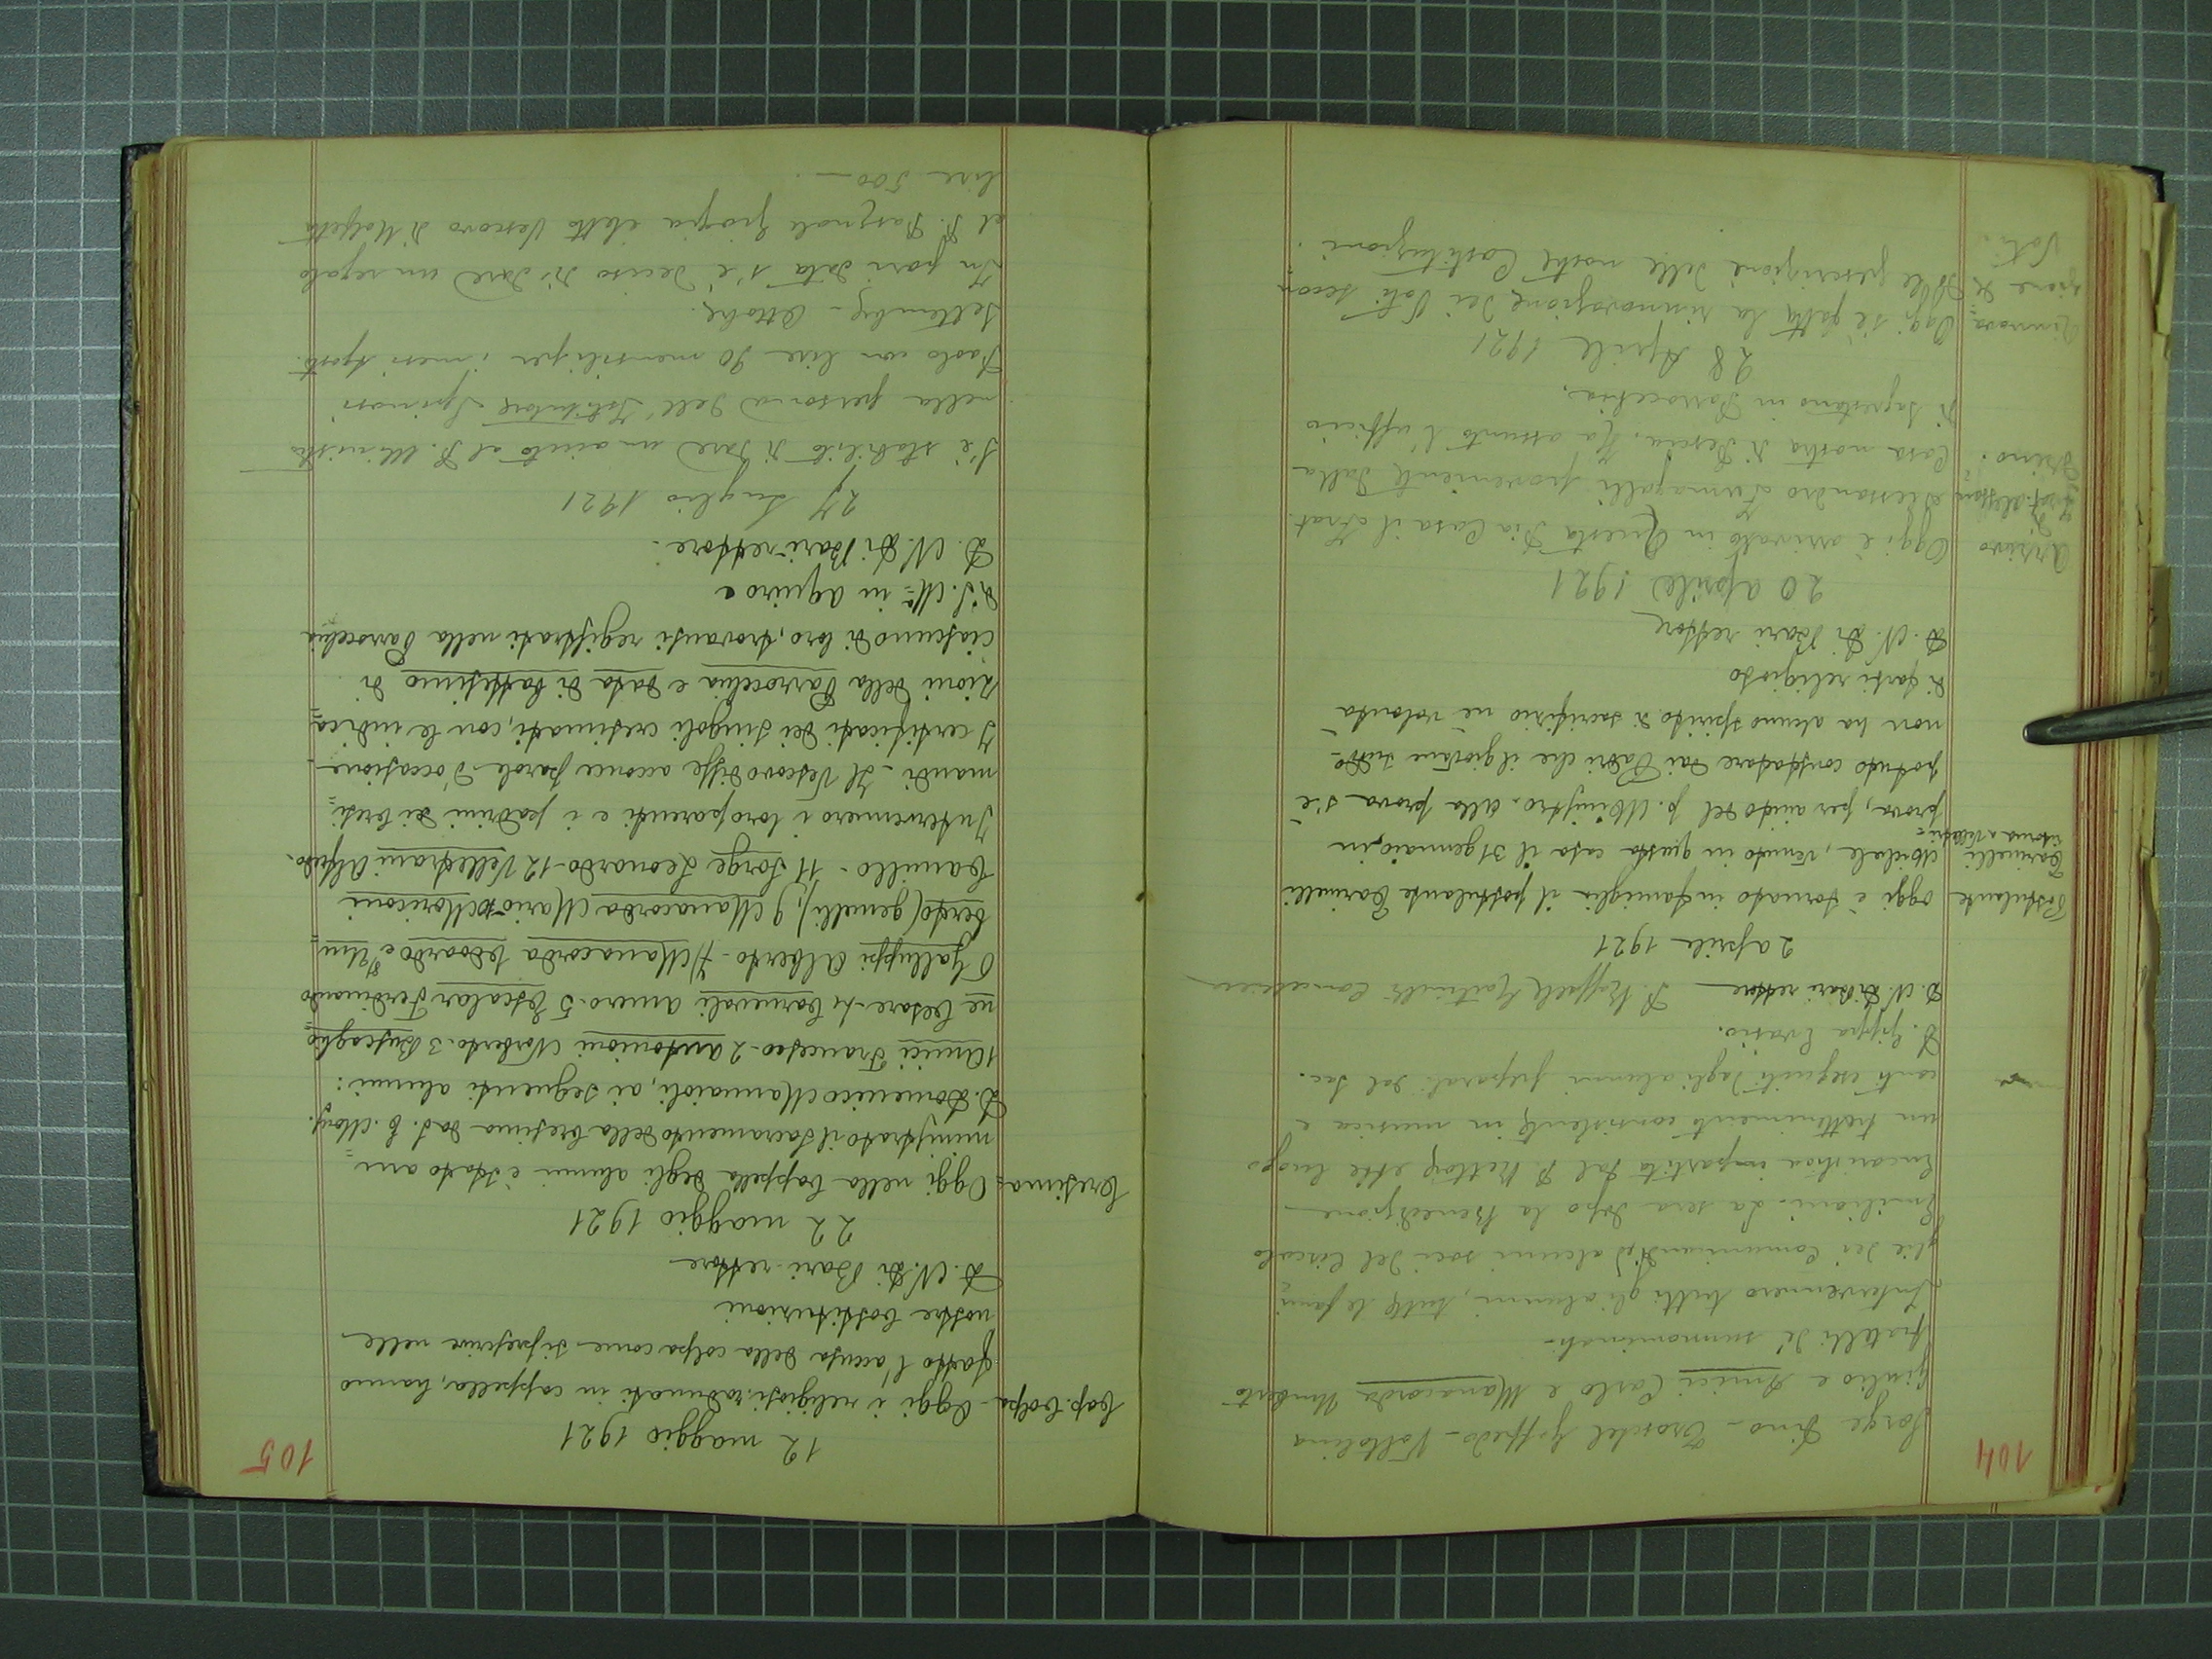 104
Sorge Lino - Troschel Goffredo - Voltolina
Giulio e Amici Carlo e Manacorda Umberto
fratelli dei summominati.
Intervennero tutti gli alunni, tutte le fami=
glie dei Comunicandi ed alcuni soci del Circolo
Emiliani. La sera dopo la Benedizione
Eucaristica impartita dal P. Rettore ebbe luogo
un trattenimento consistente in musica e
canti eseguiti dagli alunni preparati dal Sac.
D. Gippa Evasio.
D. N. Di Bari rettore P. Raffaele Martinelli Cancelliere
2 aprile 1921
Postulante
Carinelli
ritorna a Velletri=
oggi è tornato in famiglia il postulante Carinelli
Aboidale, venuto in questa casa il 31 gennaio, in
prova, per aiuto del p. Ministro. Alla prova s'è
potuto constatare dai Padri che il giovine sudd°
non ha alcuno spirito di sacrifizio nè volontà
di farsi religioso
D. N. Di Bari rettore
20 aprile 1921
Arrivo
di
frat. Alessan=
drino.
Oggi è arrivato in Questa Pia Casa il Frat.
Alessandro Fumagalli proveniente dalla
Casa nostra di Pescia, Ha assunto l'ufficio
di sagrestano in Parrocchia.
28 Aprile 1921
Rinnova=
zione di
Voti.
Oggi s'è fatta la rinnovazione dei Voti secon
do le prescrizioni delle nostre Costituzioni.
105
12 maggio 1921
Cap. Colpa - Oggi i religiosi radunati in cappella, hanno
fatto l'accusa della colpa come si prescrive nelle
nostre Costituzioni
D. N. Di Bari rettore
22 maggio 1921
Cresima= Oggi nella Cappella degli alunni è stato am=
ministrato il Sacramento della Cresima da S. E. Mons.
D. Domenico Mannaioli, ai seguenti alunni:
1 Amici Francesco - 2 Antonioni Norberto - 3 Buscaglio=
ne Cesare - 4 Carnevali Amero - 5 Escalar Ferdinando
6 Galluppi Alberto - 7) Manacorda Edoardo e 8) Um=
berto (gemelli); 9 Manacorda Mario - 10 Moriconi
Camillo - 11 Sorge Leonardo - 12 Vellegrani Alfredo.
Intervennero i loro parenti e i padrini dei Cresi=
mandi - Il Vescovo disse acconce parole d'occasione -
I certificati dei singoli cresimati, con le indica=
zioni della Parrocchia e data di battesimo di
ciascuno di loro, trovansi registrati nella Parrocchia
di S. M.ª in Aquiro
D. N. Di Bari rettore.
27 Luglio 1921
S'è stabilito di dare un aiuto al P. Ministro
nella persona dell'Istitutore Spinosi
Paolo con lire 90 mensili per i mesi Agosto.
Settembre - Ottobre.
In pari data s'è deciso di dare un regalo
al P. Pasquale Gioia eletto Vescovo di Molfetta
lire 500 -.